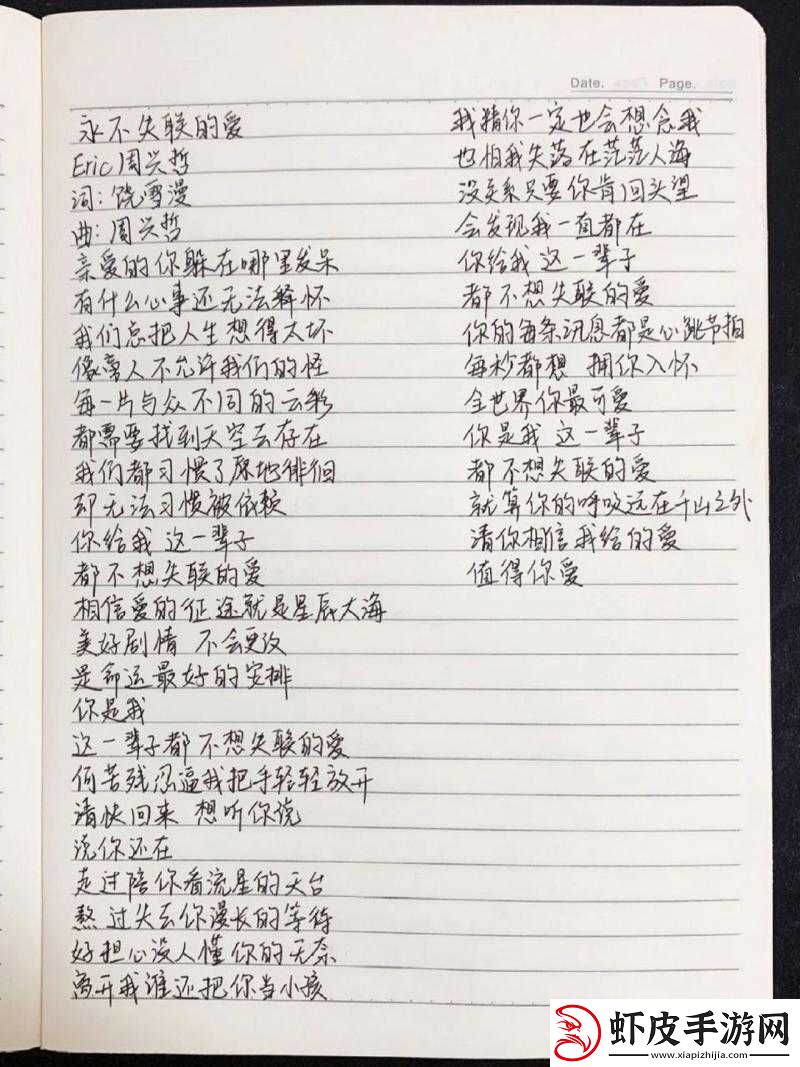 Date. Page.
永不失联的爱
Eric周兴哲
词:饶雪漫
曲:周兴哲
亲爱的你躲在哪里发呆
有什么心事还无法释怀
我们总把人生想得太坏
像旁人不允许我们的怪
每一片与众不同的云彩
都需要找到天空去存在
我们都习惯了原地徘徊
却无法习惯被依赖
你给我 这一辈子
都不想失联的爱
相信爱的征途就是星辰大海
美好剧情 不会更改
是命运最好的安排
你是我
这一辈子都不想失联的爱
何苦残忍逼我把手轻轻放开
请快回来 想听你说
说你还在
走过陪你看流星的天台
熬过失去你漫长的等待
好担心没人懂你的无奈
离开我谁还把你当小孩
我猜你一定也会想念我
也怕我失落在茫茫人海
没关系只要你肯回头望
会发现我一直都在
你给我 这一辈子
都不想失联的爱
你的每条讯息都是心跳节拍
每秒都想 拥你入怀
全世界你最可爱
你是我 这一辈子
都不想失联的爱
就算你的呼吸远在千山之外
请你相信我给的爱
值得你爱
虾皮手游网
www.xiapizhijia.com